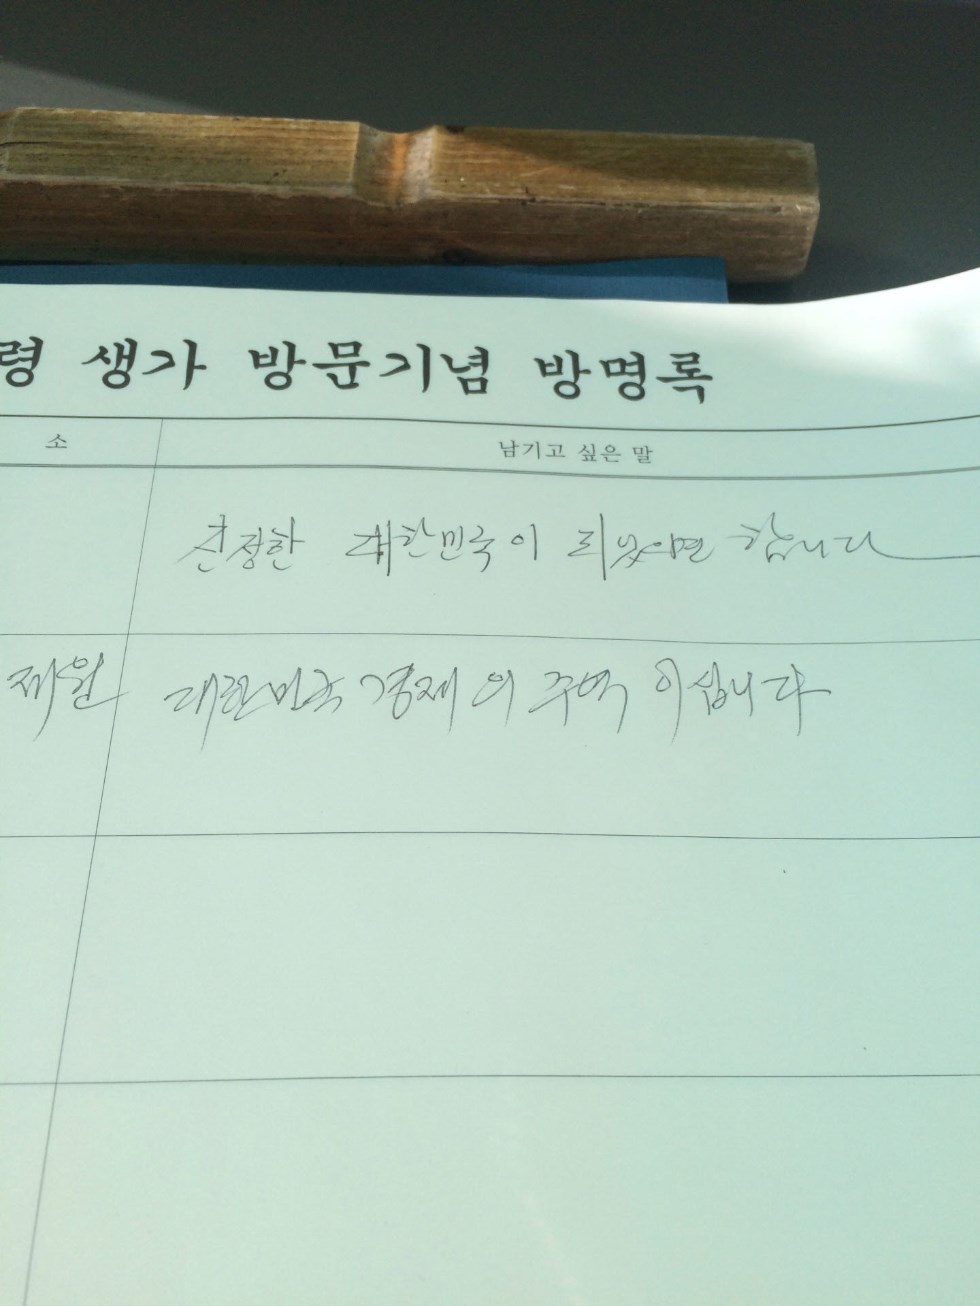 령 생가 방문기념 방명록
소 남기고 싶은 말
대한민국이 되었으면 합니다
대한민국 경제의 주역이십니다